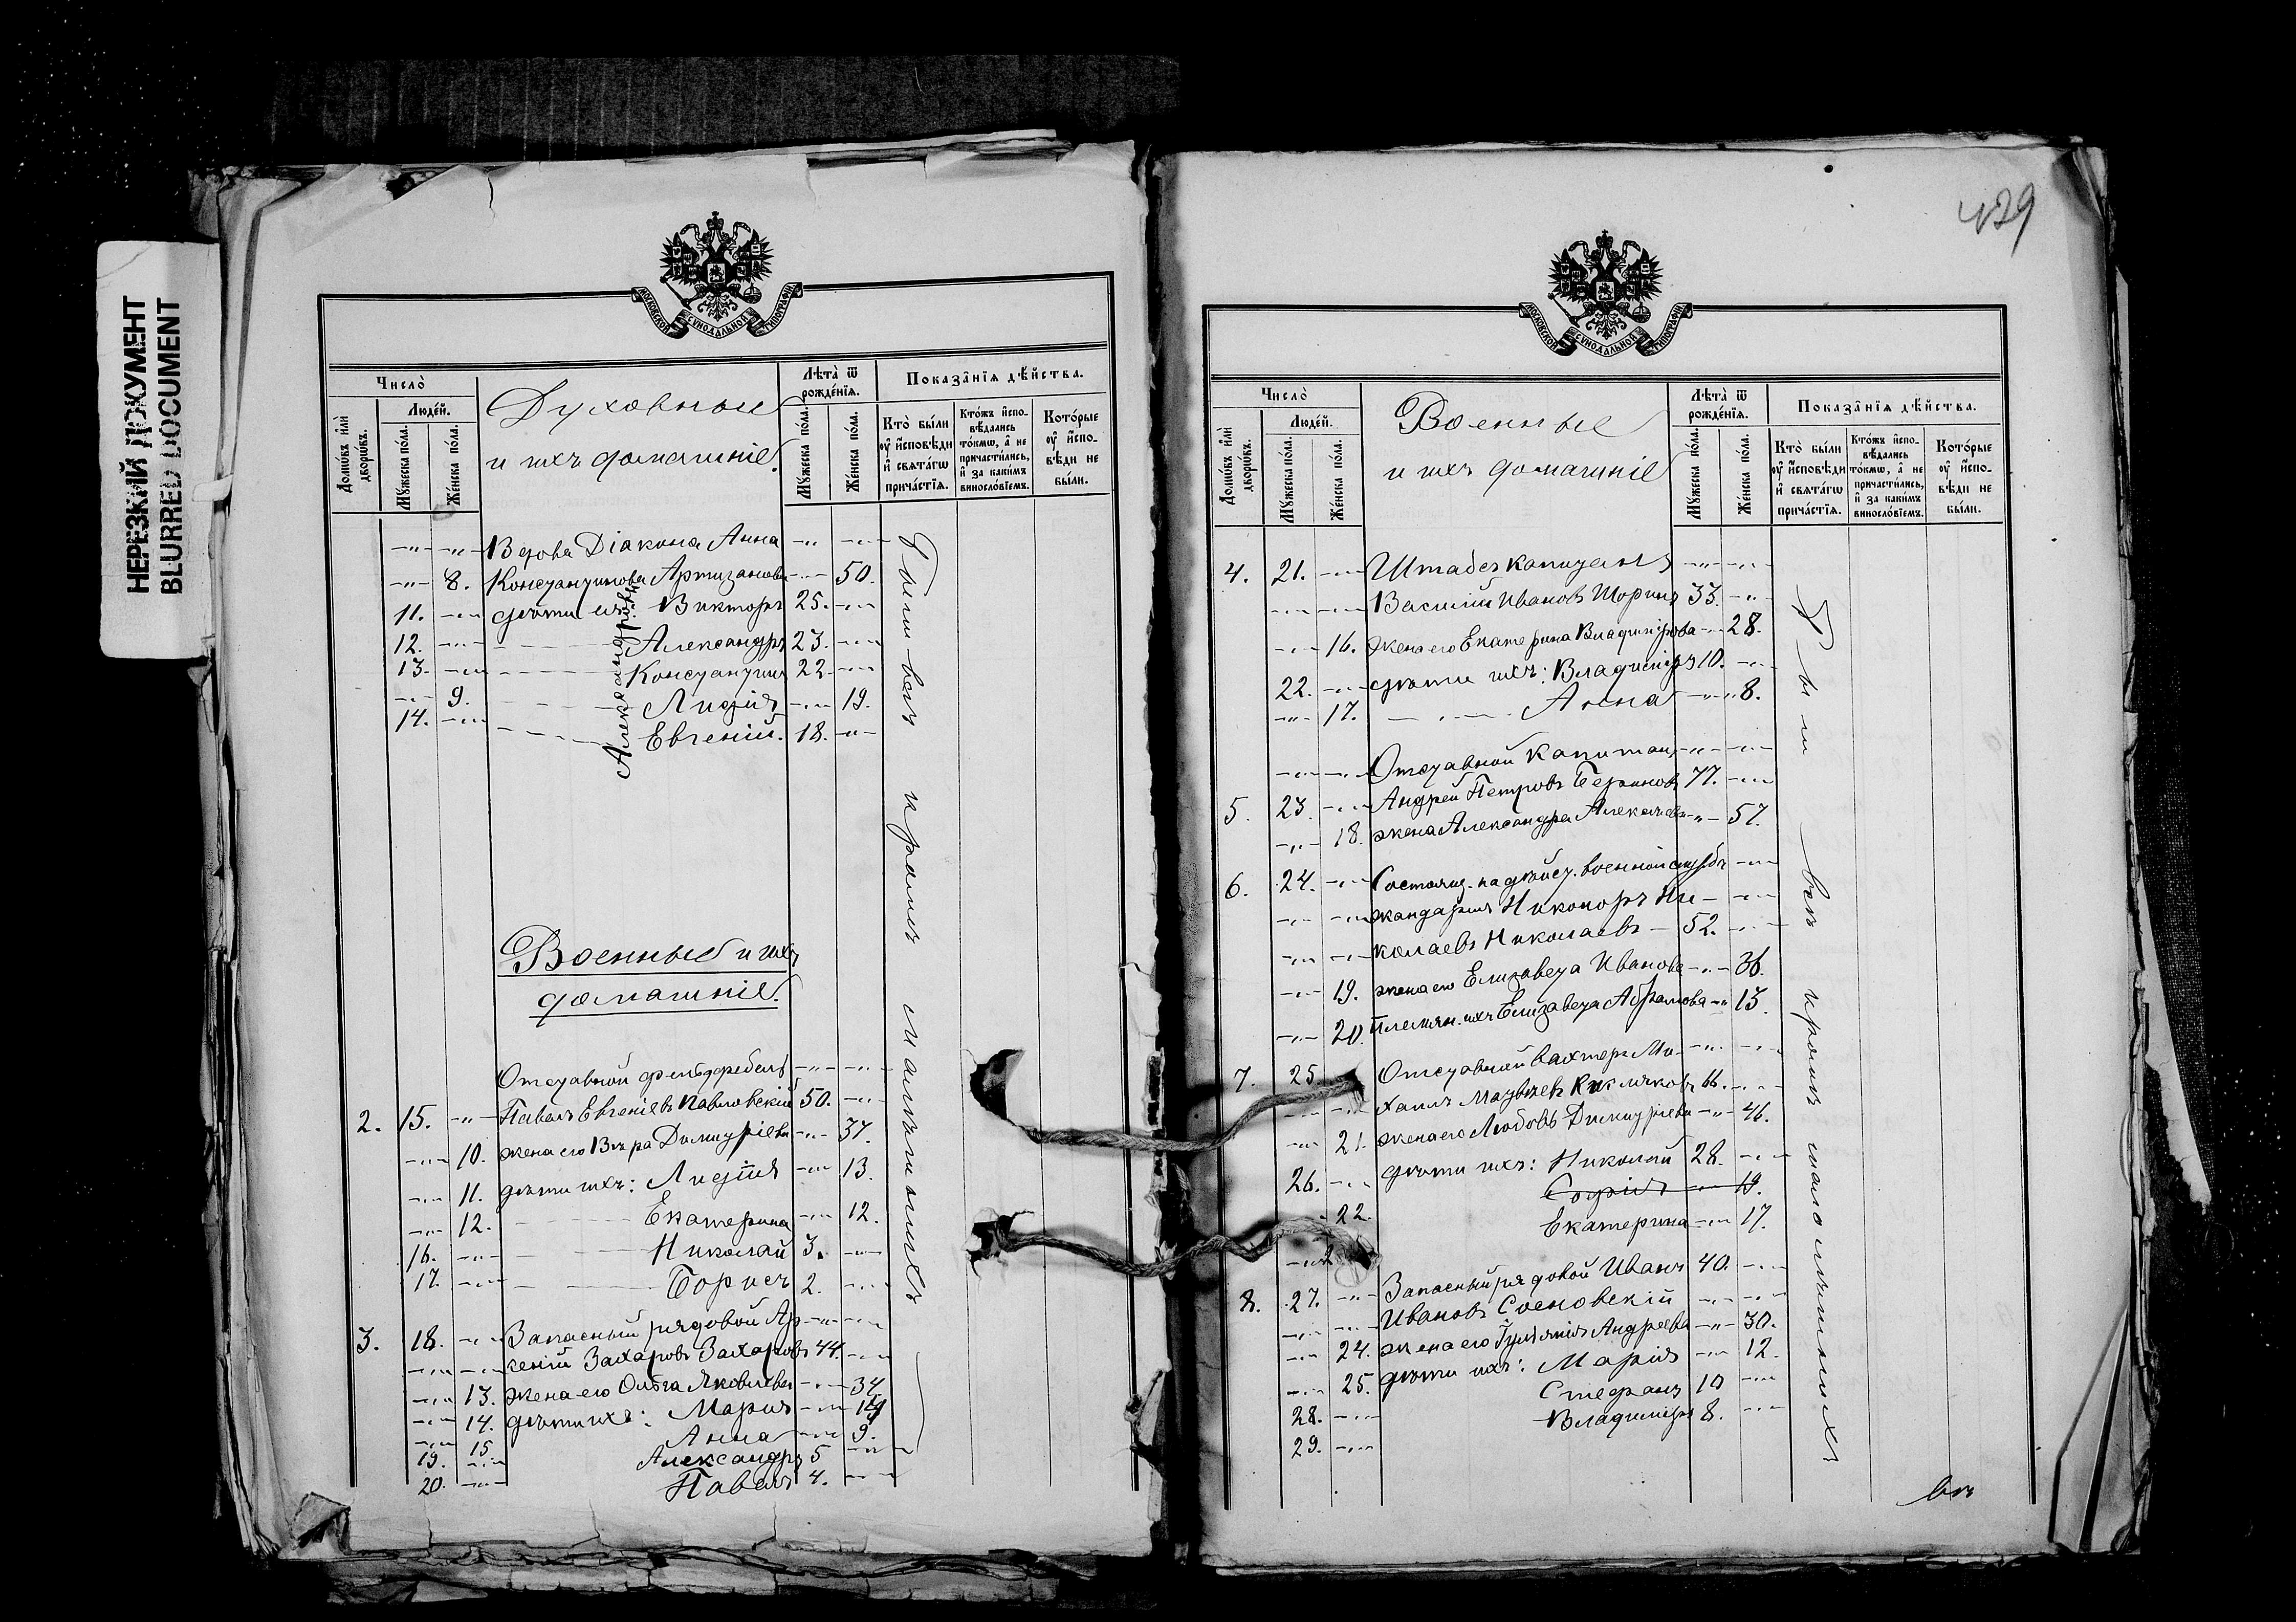 НЕРЕЗКИЙ ДОКУМЕНТ
BLURRED DOCUMENT
МОСКОВСКОЙ СѴНОДАЛЬНОЙ ТИПОГРАФІИ
Число̀
Домѡ́въ и҆лѝ дворѡ́въ.
Люде́й.
Мꙋ́жеска по́ла.
Же́нска по́ла.
Духовные
и ихъ домашніе.
Лѣта̀ ѿ рожде́нїѧ.
Мꙋ́жеска по́ла.
Же́нска по́ла.
Показа̑нїѧ дѣ́йства.
Кто̀ бы́ли ᲂу҆ и҆сповѣ́ди и҆ свѧта́гѡ прича́стїѧ.
Кто́жъ и҆спо-вѣ́дались то́кмѡ, а҆ не причасти́лись, и҆ за каки́мъ винесло́вїемъ.
Кото́рые ᲂу҆ и҆спо-вѣ́ди не бы́ли.
-"- -"- Вдова Діакона Анна -"- -"-
-"- 8. Константинова -"- 50.
11. -"- дѣти ея: Викторъ 25. -"-
12. -"- Александръ 23. -"-
13. -"- Константинъ 22. -"-
-"- 9. Лидія -"- 19.
14. -"- Евгеній. 18. -"-
Александровы
Были всѣ кромѣ малолѣтнихъ
Военные и ихъ
домашніе.
Отставной фельдфебель -"- -"-
2. 15. -"- Павелъ Евгеніевъ Павловскій 50. -"-
-"- 10. жена его Вѣра Димитріева -"- 37.
-"- 11. дѣти ихъ: Лидія -"- 13.
-"- 12. Екатерина -"- 12.
16. -"- Николай 3. -"-
17. -"- Борисъ 2. -"-
3. 18. -"- Запасный рядовой Ар- -"- -"-
-"- -"- сеній Захаровъ Захаровъ 44. -"-
-"- 13. жена его Ольга Яковлева -"- 34
-"- 14. дѣти ихъ: Марія -"-
-"- 15. Анна -"- 9.
19. -"- Александръ 5 -"-
20. -"- Павелъ 4. -"-
429
МОСКОВСКОЙ СѴНОДАЛЬНОЙ ТИПОГРАФІИ
Число̀
Домѡ́въ и҆лѝ дворѡ́въ.
Люде́й.
Мꙋ́жеска по́ла.
Же́нска по́ла.
Военные
и ихъ домашніе
Лѣта̀ ѿ рожде́нїѧ.
Мꙋ́жеска по́ла.
Же́нска по́ла.
Показа̑нїѧ дѣ́йства.
Кто̀ бы́ли ᲂу҆ и҆сповѣ́ди и҆ свѧта́гѡ прича́стїѧ.
Кто́жъ и҆спо-вѣ́дались то́кмѡ, а҆ не причасти́лись, и҆ за каки́мъ винесло́вїемъ.
Кото́рые ᲂу҆ и҆спо-вѣ́ди не бы́ли.
4. 21. -"- Штабсъ Капитанъ -"- -"-
-"- -"- Василій Ивановъ Шоринъ 33. -"-
-"- 16. жена его Екатерина Владимірова -"- 28.
22. -"- дѣти ихъ: Владиміръ 10. -"-
-"- 17. Анна -"- 8.
-"- -"- Отставной Капитанъ -"- -"-
5. 23. -"- Андрей Петровъ 77. -"-
-"- 18. жена Александра Алексѣева -"- 57.
6. 24. -"- Состоящ. на дѣйст. военной службѣ -"-
-"- -"- жандармъ Никоноръ Ни- -"-
-"- -"- колаевъ Николаевъ 52. -"-
-"- 19. жена его Елизавета Иванова -"- 36.
-"- 20. Племян. ихъ Елизавета Абрамова -"- 13.
7. 25 Отставной вахтеръ Ми- -"- -"-
-"- -"- хаилъ Матвѣевъ 66. -"-
-"- 21. жена его Любовь Димитріева -"- 46.
26. -"- дѣти ихъ: Николай 28. -"-
22. Софія -"- 19.
Екатерина -"- 17.
8. 27. -"- Запасный рядовой Иванъ 40. -"-
-"- -"- Ивановъ Сосновскій -"- -"-
-"- 24. жена его Іуліанія Андреева -"- 30.
-"- 25. дѣти ихъ: Марія -"- 12.
28. -"- Стефанъ 10 -"-
29. -"- Владиміръ 8. -"-
Были всѣ кромѣ малолѣтнихъ